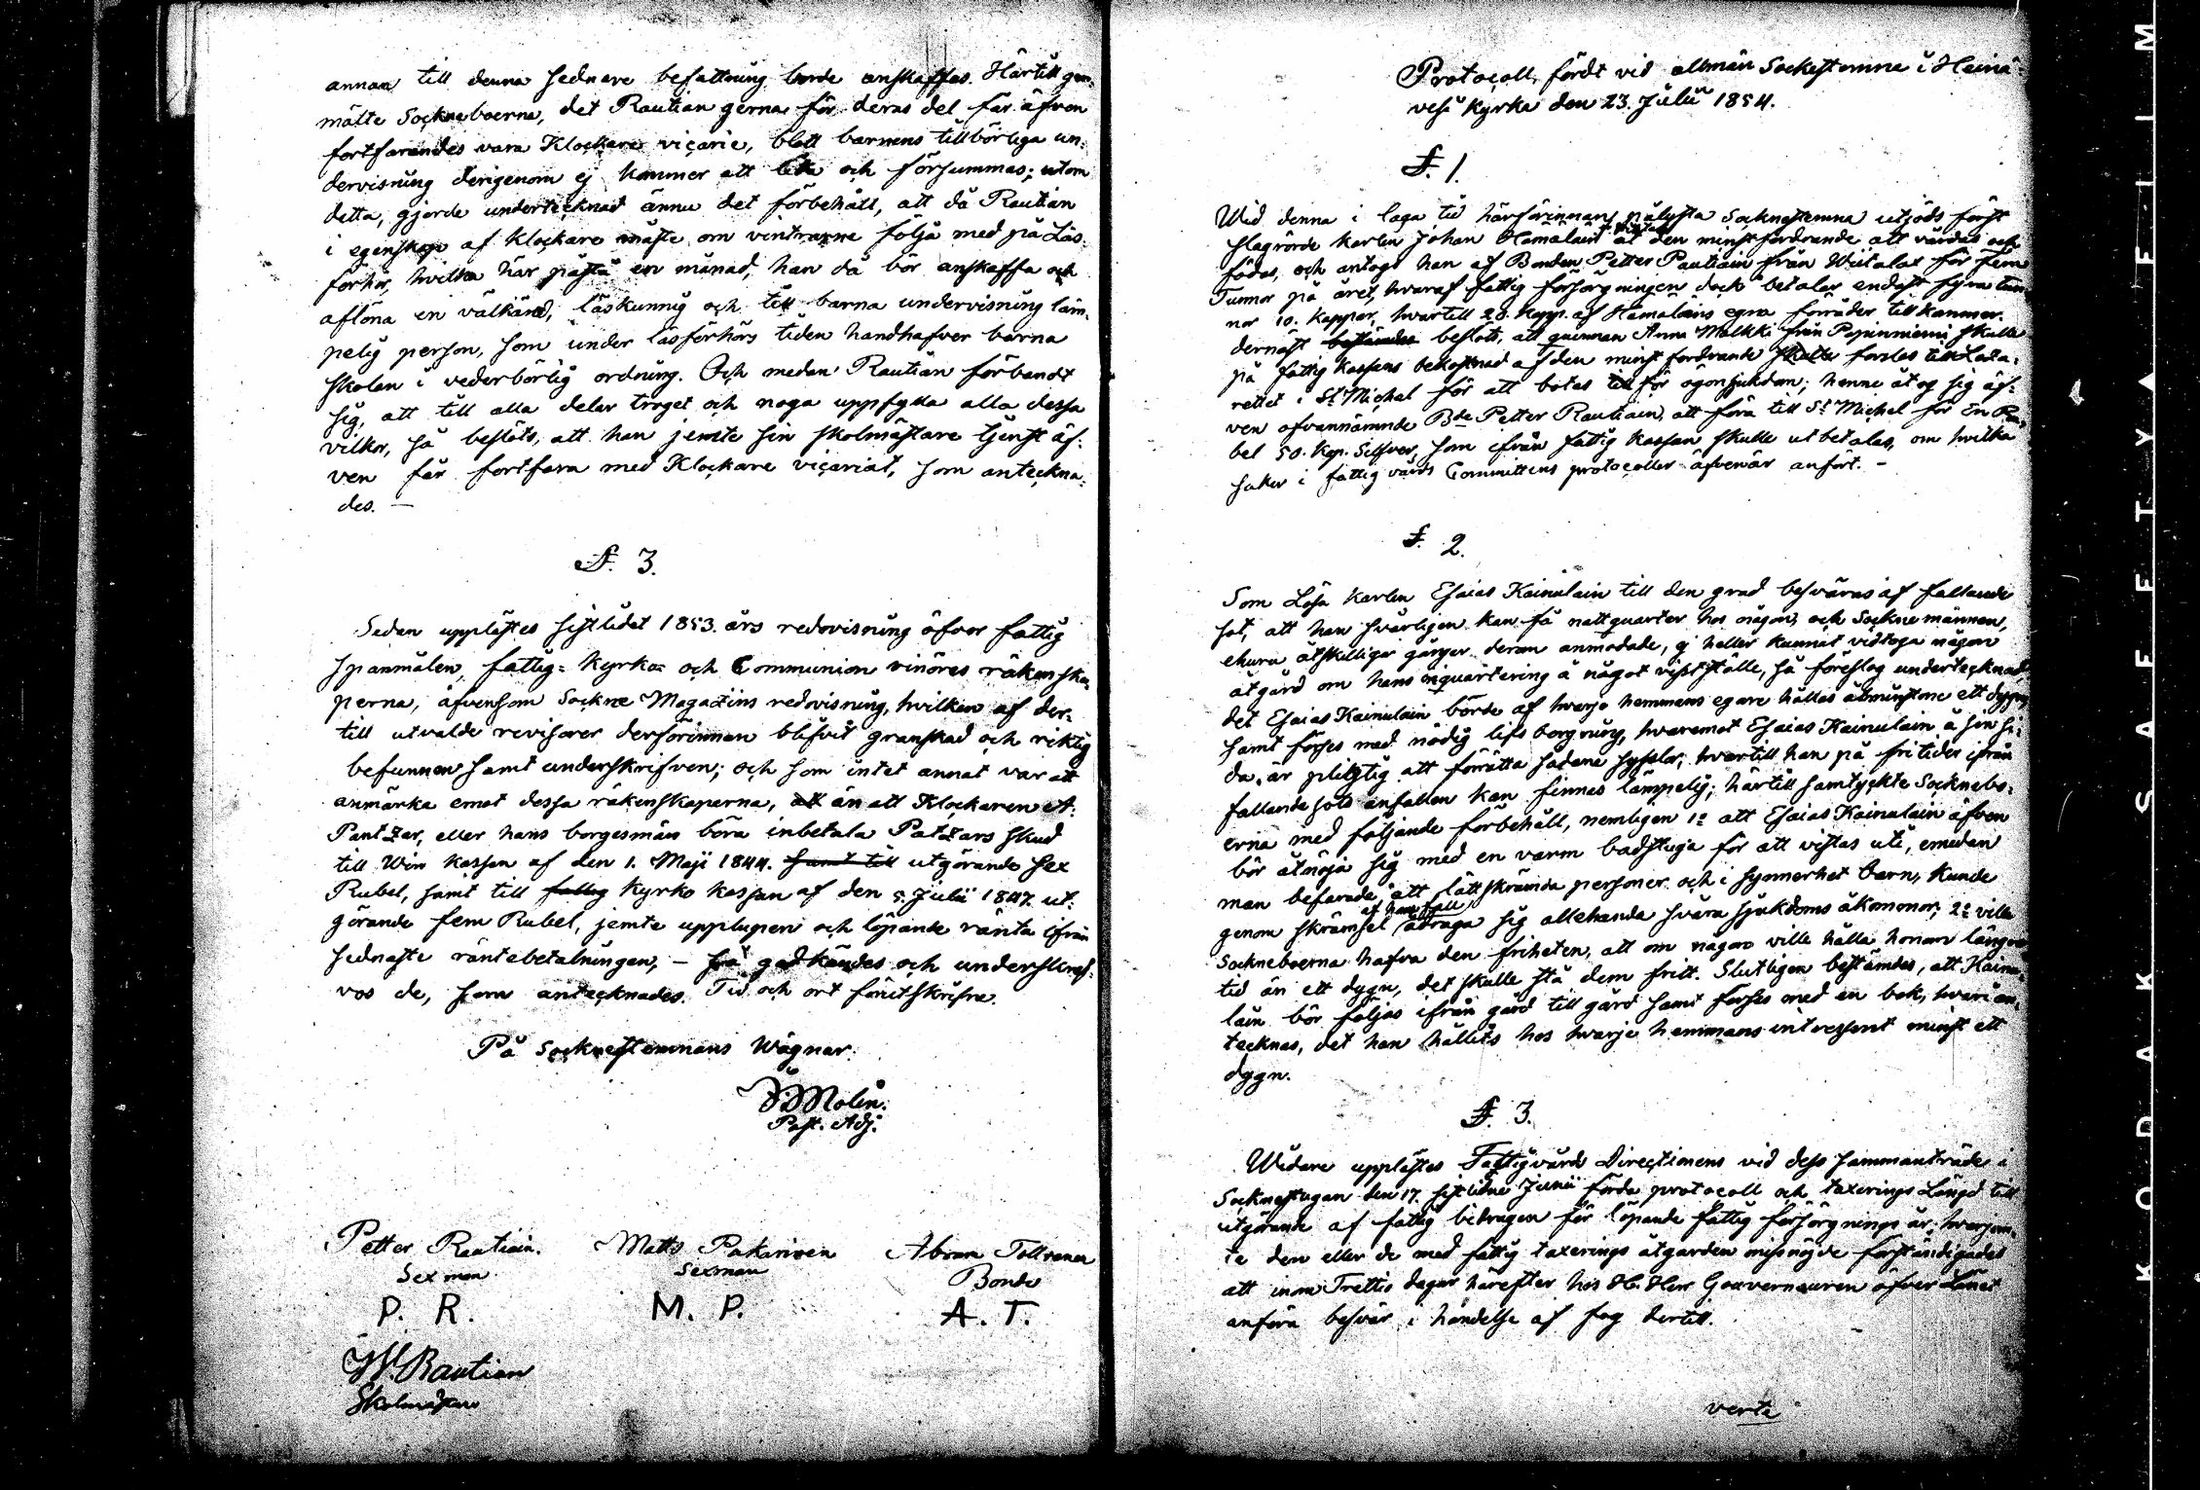 annan till denna sednare befattning borde anskaffas. Härtill gen-
mälte Sockneboerna, det Rautian gerna för deras del får äfven
fortfarandes vara Klockare vicarie, blott barnens tillbörliga un-
dervisning derigenom ej kommer att lida och försummas; utom
detta, gjorde undertecknad ännu det förbehåll, att då Rautian
i egenskap af Klockare måste om vintrarne följa med på Läs-
förhör, hvilka här påstå en månad, han då bör anskaffa och
aflöna en välkänd, läskunnig och till barna undervisning läm-
pelig person, som under läsförhörs tiden handhafver barna
skolan i vederbörlig ordning. Och medan Rautian förbandt
sig, att till alla delar troget och noga uppfylla alla dessa
vilkor, så beslöts, att han jemte sin skolmästare tjenst äf-
ven får fortfara med Klockare vicariat, som anteckna-
des. —
§. 3.
Sedan upplästes sistlidet 1853. års redovisning öfver fattig
spanmålen, fattig- Kyrko- och Communion vinöres räkenska-
perna, äfvensom Sockne Magazins redovisning, hvilken af der-
till utvalde revisorer derförinnan blifvit granskad och riktig
befunnen samt underskrifven; och som intet annat var att
anmärka emot dessa räkenskaperna, att än att Klockaren A.
Pantzar, eller hans borgesmän böra inbetala Patzars skuld
till Win kassan af den 1. Maji 1844. samt till utgörande sex
Rubel, samt till fattig Kyrko kassan af den 5. Julii 1847. ut-
görande fem Rubel, jemte upplupen och löpande ränta ifrån
sednaste räntebetalningen, — så godkändes och underskref-
vos de, som antecknades. Tid och ort förutskrifne.
På Sockenstemmans Wägnar:
Molin.
Past. Adj.
Petter Rautiain. Matts Pakarinen Abram Tolvanen
Sexman Sexman Bonde
P. R. M. P. A. T.
Rautian
Skolmästare
Protocoll, fördt vid allmän Sockestemna i Heinä-
vesi Kyrka den 23. Julii 1854.
§. 1.
Wid denna i laga tid härförinnan pålysta Socknestemna utjöds först
slagrörde karlen Johan Hämäläin åt den minst fordrande att vårdas och
födas, och antogs han af Bonden Petter Rautiain från Wiitalax för fem
Tunnor på året, hvaraf fattig försörgningen dock betalar endast fyra tun-
nor 10. Kappar, hvartill 20. Kapp. af Hämäläins egna förråder tillkommer.
dernäst bestämdes beslöts, att qvinnan Anna Malkki från Papinniemi skulle
på fattig kassans bekostnad af den minst fordrande skulle forslas till Laza-
rettet i St Michel för att botas till för ögonsjukdom; henne åtog sig äf-
ven ofvannämnde Bde Petter Rautiain, att föra till St Michel för En Ru-
bel 50. Kop. Silfver, som ifrån fattig kassan skulle utbetalas, om hvilka
saker i fattig vårds Committens protocoller äfven är anfört. —
§. 2.
Som Lösa karlen Esaias Kainulain till den grad besväras af fallande
sot, att han svårligen kan få nattquarter hos någon, och Socknemännen,
ehuru åtskilliga gånger derom anmodade, ej heller kunnat vidtaga någon
åtgärd om hans inquartering å något visst ställe, så föreslog undertecknad,
det Esaias Kainulain börde af hvarje hemmans egare hållas åtminstone ett dygn,
samt förses med nödig lifs bergning, hvaremot Esaias Kainulain å sin si-
da, är pligtig att förrätta sådane sysslor, hvartill han på fritider ifrån
fallande sots anfallen kan finnas lämpelig; härtill samtyckte Sockneboe-
erna med följande förbehåll, nemligen 1o att Esaias Kainulain äfven
bör åtnöja sig med en varm badstuga för att vistas uti, emedan
man befarade, att lättskrämda personer och i synnerhet barn, kunde
af hans fall
genom skrämsel ådraga sig allehanda svåra sjukdoms åkommor; 2o ville
Sockneboerna hafva den friheten, att om någon ville hålla honom längre
tid än ett dygn, det skulle stå dem fritt. Slutligen bestämdes, att Kainu-
lain bör följas ifrån gård till gård samt förses med en bok, hvari an-
tecknas, det han hållits hos hvarje hemmans intressent minst ett
dygn.
§. 3.
Widare upplästes Fattigvårds Directionens vid dess sammanträde i
Socknestugan den 17. sistlidne Junii förda protocoll och taxerings Längd till
utgörande af fattig bidragen för löpande fattig försörgnings år; hvarjem-
te den eller de med fattig taxerings åtgärden missnöjde förständigades
att inom Trettio dagar härefter hos H. Herr Gouverneuren öfver Länet
anföra besvär i händelse af fog dertill.
verte